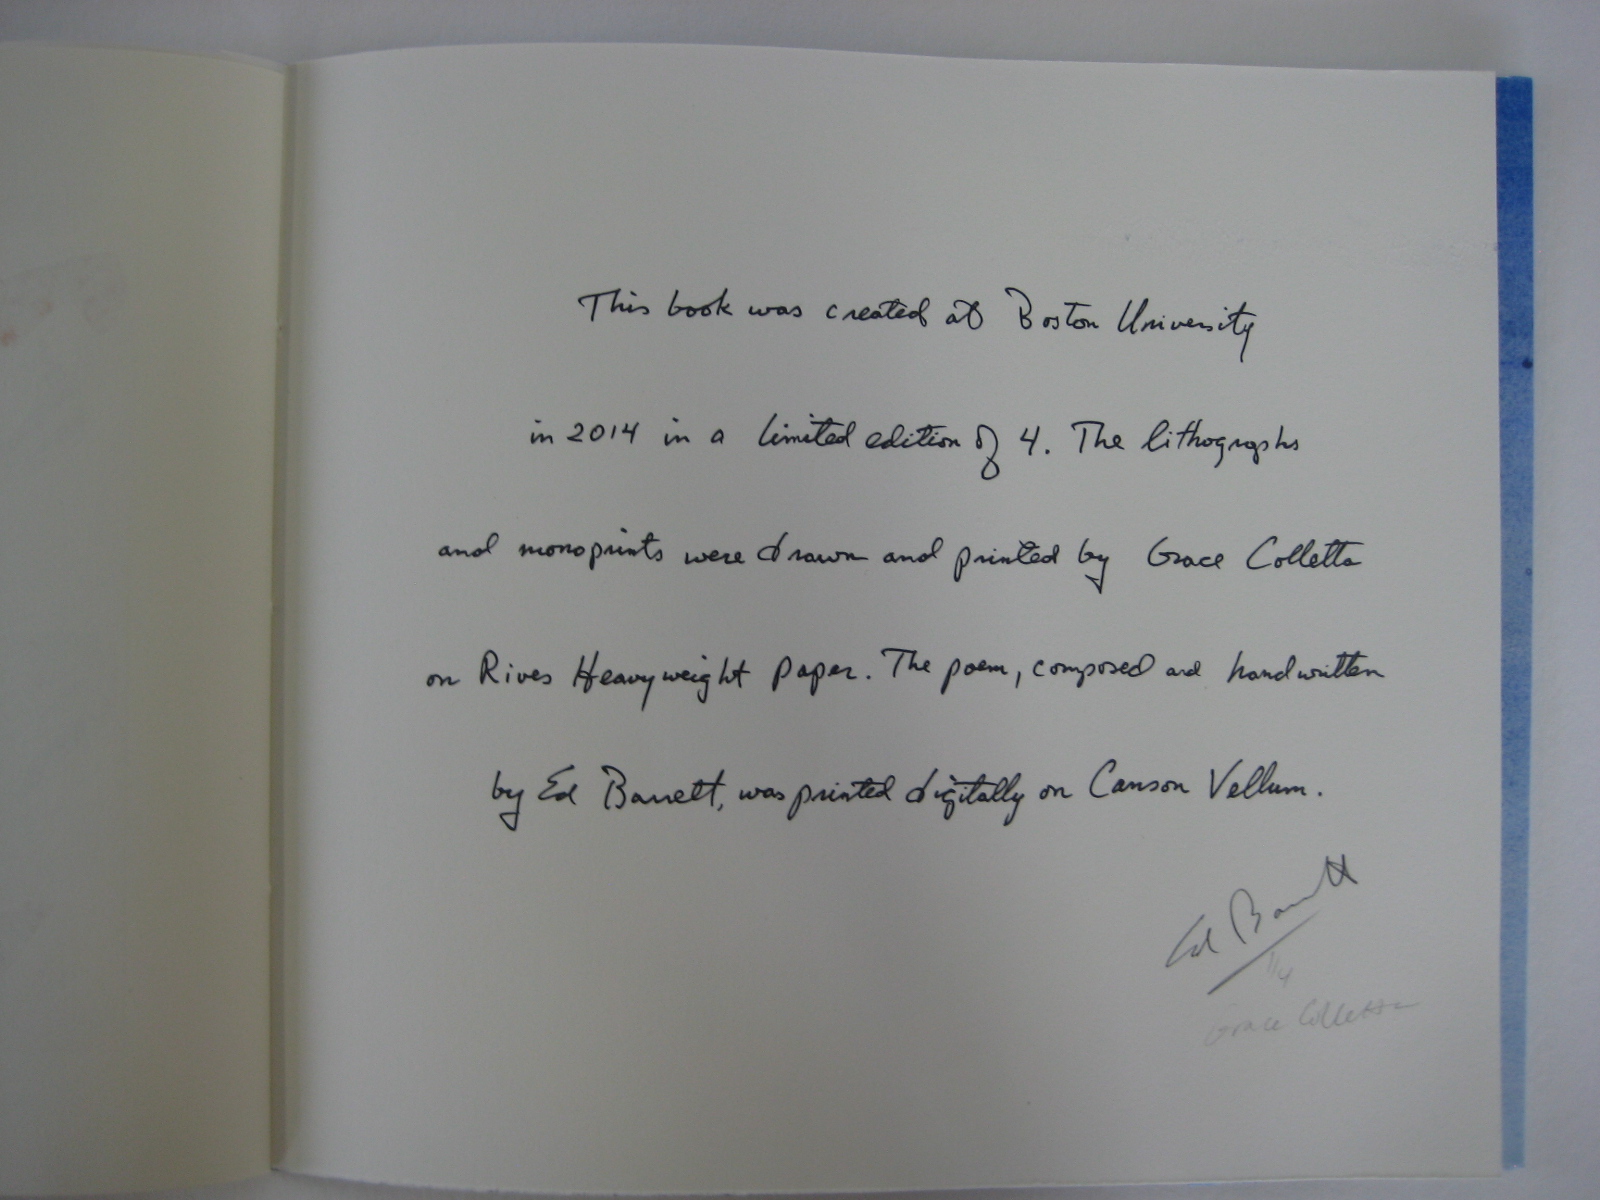 This book was created at Boston University
in 2014 in a limited edition of 4. The lithographs
and monoprints were drawn and printed by Grace Colletta
on Rives Heavyweight paper. The poem, composed and handwritten
by Ed Barrett, was printed digitally on Canson Vellum.
Ed Barrett
1/4
Grace Colletta